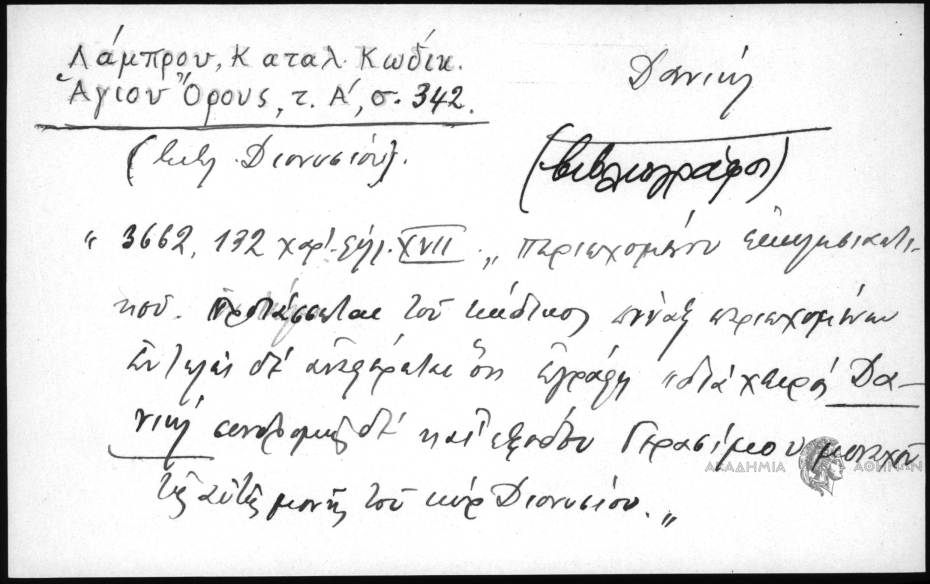 Λάμπρου, Καταλ. Κωδίκ.
Ἁγίου Ὄρους, τ. Α', σ. 342.
Δανιὴλ
(βιβλ. Διονυσίου).
(βιβλιογράφοι)
" 3662, 132 χαρ. XVII „ περιεχομένου ἐκκλησιαστι-
κοῦ. Προτάσσεται τοῦ κώδικος πίναξ περιεχομένων
Ἐν τέλει δὲ ἀναφέρεται ὅτι ἐγράφη "διὰ χειρὸς Δα-
νιὴλ συνδρομῆς δὲ καὶ ἐξόδου Γερασίμου μοναχοῦ
τῆς αὐτῆς μονῆς τοῦ κὺρ Διονυσίου.„
ΑΚΑΔΗΜΙΑ ΑΘΗΝΩΝ